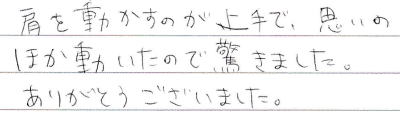 肩を動かすのが上手で、思いの
ほか動いたので驚きました。
ありがとうございました。